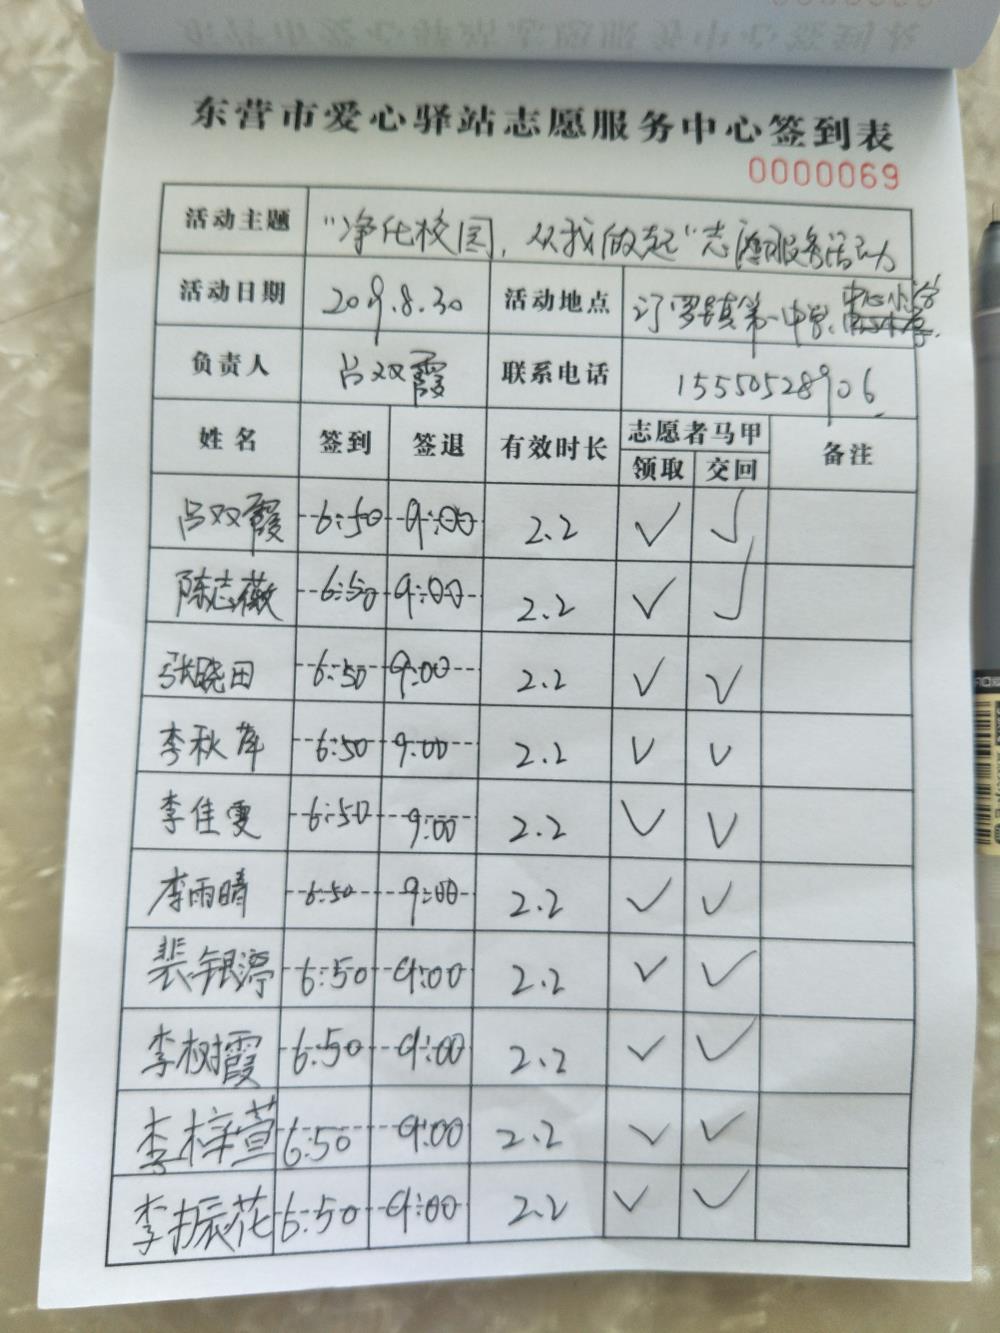 东营市爱心驿站志愿服务中心签到表
0000069
活动主题 "净化校园，从我做起"志愿服务活动
活动日期 2019.8.30 活动地点 汀罗镇第一中学、中心小学
负责人 吕双霞 联系电话 15550528906
姓名 签到 签退 有效时长 志愿者马甲 备注
领取 交回
吕双霞 6:50 9:00 2.2 ✓ ✓
陈志薇 6:50 9:00 2.2 ✓ ✓
张晓田 6:50 9:00 2.2 ✓ ✓
李秋萍 6:50 9:00 2.2 ✓ ✓
李佳雯 6:50 9:00 2.2 ✓ ✓
李雨晴 6:50 9:00 2.2 ✓ ✓
裴银渟 6:50 9:00 2.2 ✓ ✓
李树霞 6:50 9:00 2.2 ✓ ✓
李梓萱 6:50 9:00 2.2 ✓ ✓
李振花 6:50 9:00 2.2 ✓ ✓